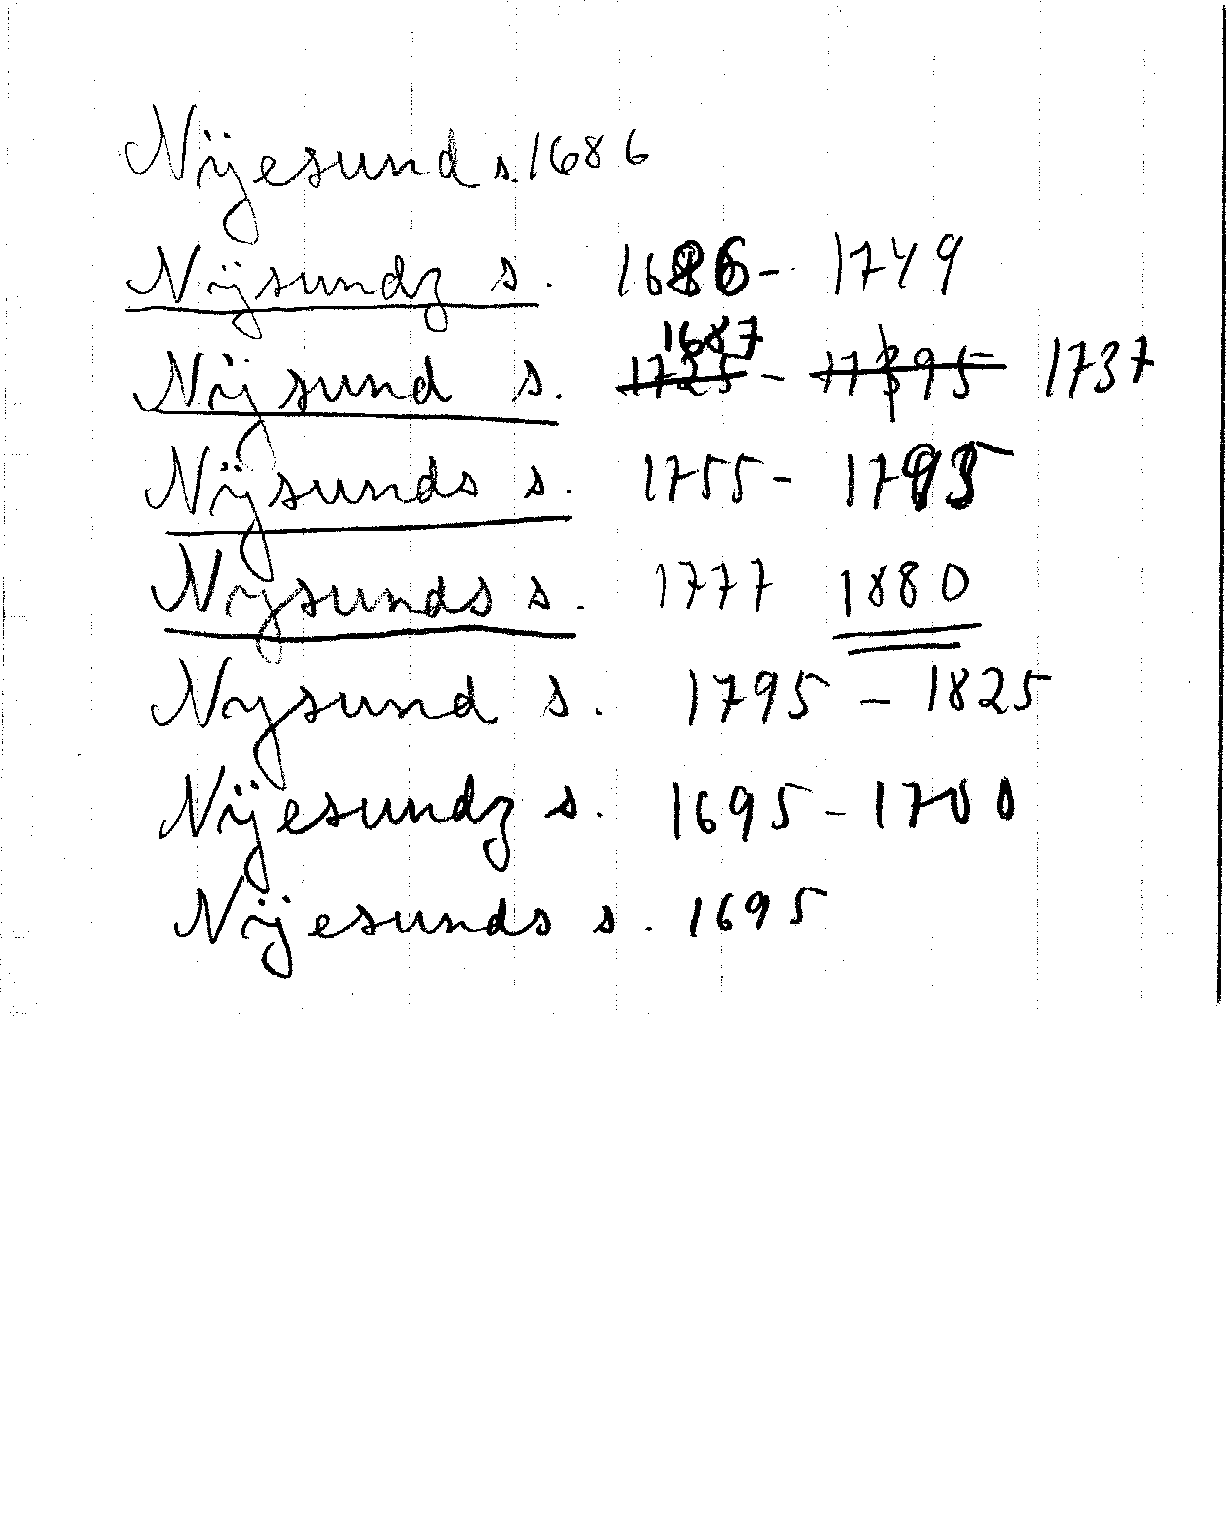 Nÿesund s. 1686
Nÿsundz s. 1686 - 1749
1687
Nÿsund s. 1725 - 17895 1737
Nÿsunds s. 1755 - 1795
Nysunds s. 1777 1880
Nysund s. 1795 - 1825
Nÿesundz s. 1695 - 1700
Nÿesunds s. 1695